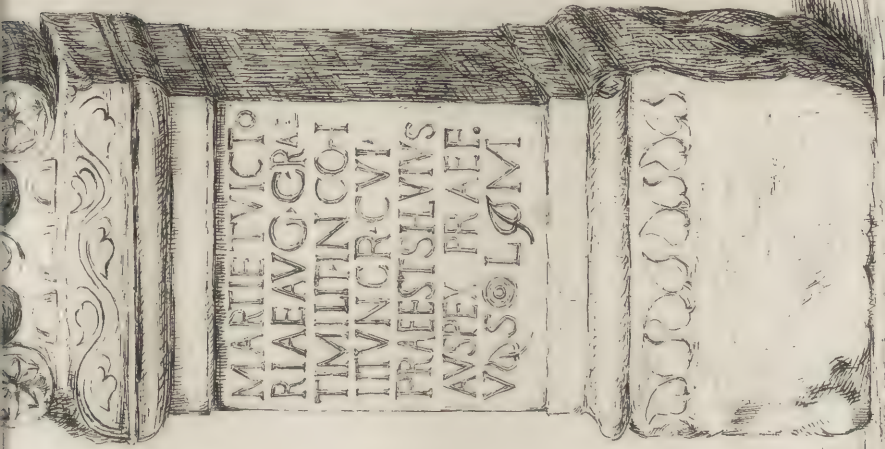 MARTI ET VICTO
RIAE AVG·C·RAE
TI MILIT·IN CO·I
II TVN CR·CVI
PRAEST SILVIVS
AVSPEX PRAEF.
V S L M